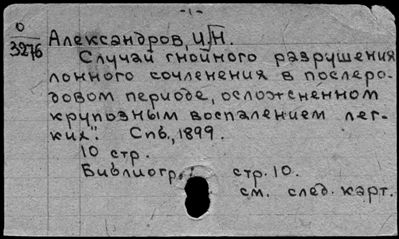 -1-
О
3276
Александров, И.Н.
Случай гнойного разрушения
лонного сочленения в послеро-
довом периоде, осложненном
крупозным воспалением лег-
ких". Спб., 1899.
10 стр.
Библиогр.: стр. 10.
см. след. карт.